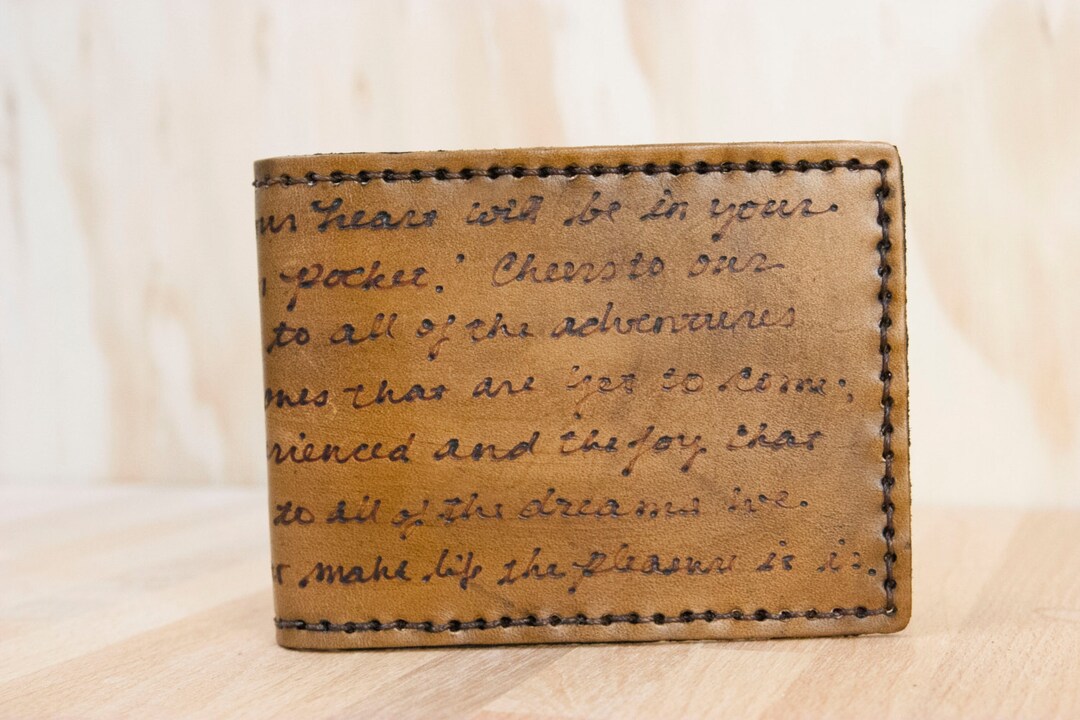 ur heart will be in your
pocket." Cheers to our
to all of the adventures
ones that are yet to come;
rienced and the joy that
to all of the dreams we
r make life the pleasure it is.